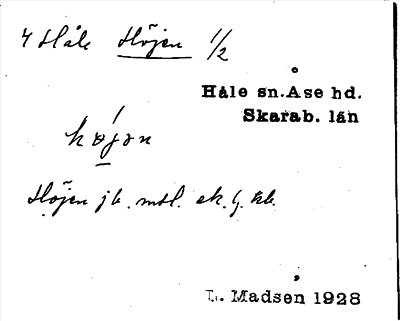 4 Håle Höjen 1/2
Håle sn. Åse hd.
Skarab. län
Höjen jb. mtl. ek. g. kb.
L. Madsen 1928